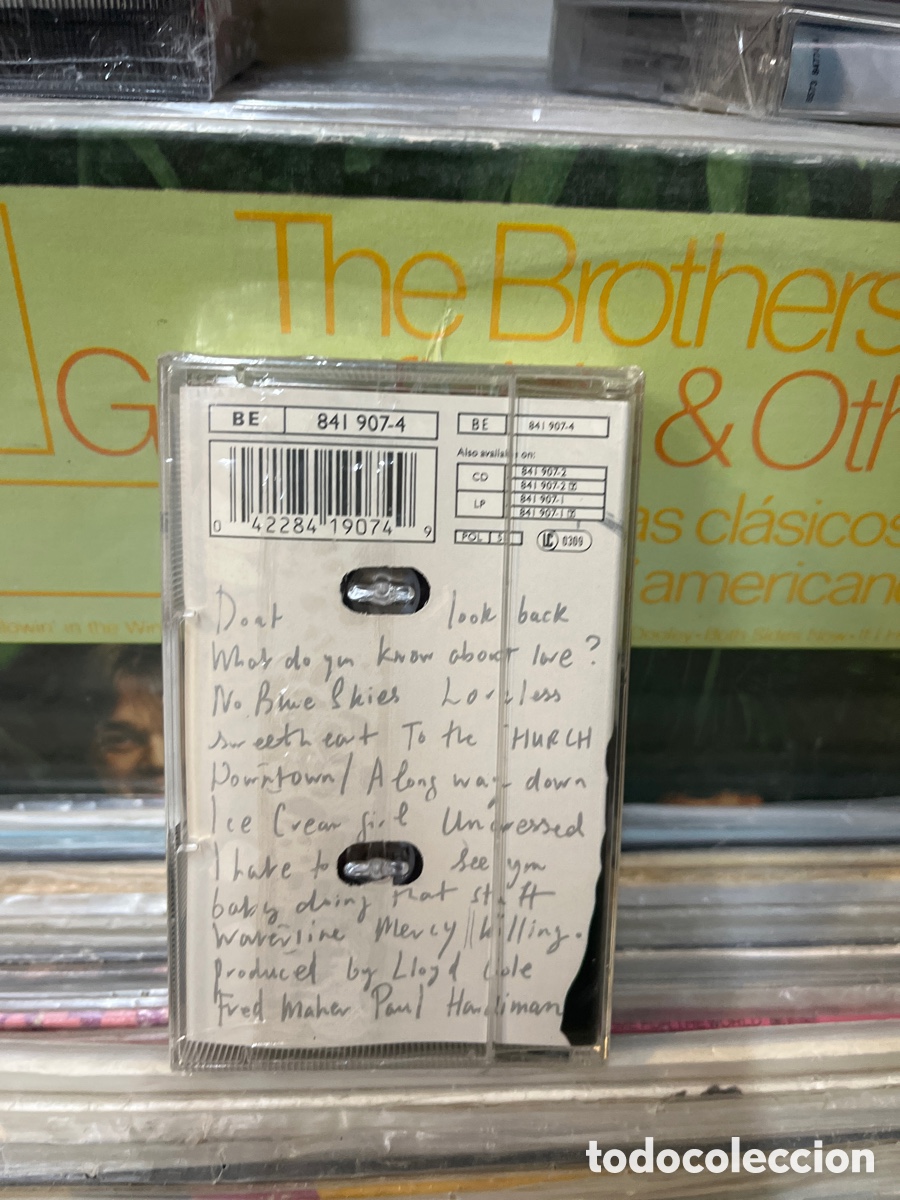 The Brothers
G & Oth
as clásicos
americano
Blowin' in the Win
Dooley • Both Sides Now • If I h
BE 841 907-4
0 42284 19074 9
BE 841 907-4
Also available on:
CD 841 907-2
841 907-2
LP 841 907-1
841 907-1
POL
LC 0309
Dont look back
What do you know about love?
No Blue Skies Loveless
sweetheart To the CHURCH
Downtown / A long way down
Ice Cream girl Undressed
I hate to see you
baby doing that stuff
Waterline Mercy killing.
produced by Lloyd Cole
Fred Maher Paul Hardiman
todocoleccion